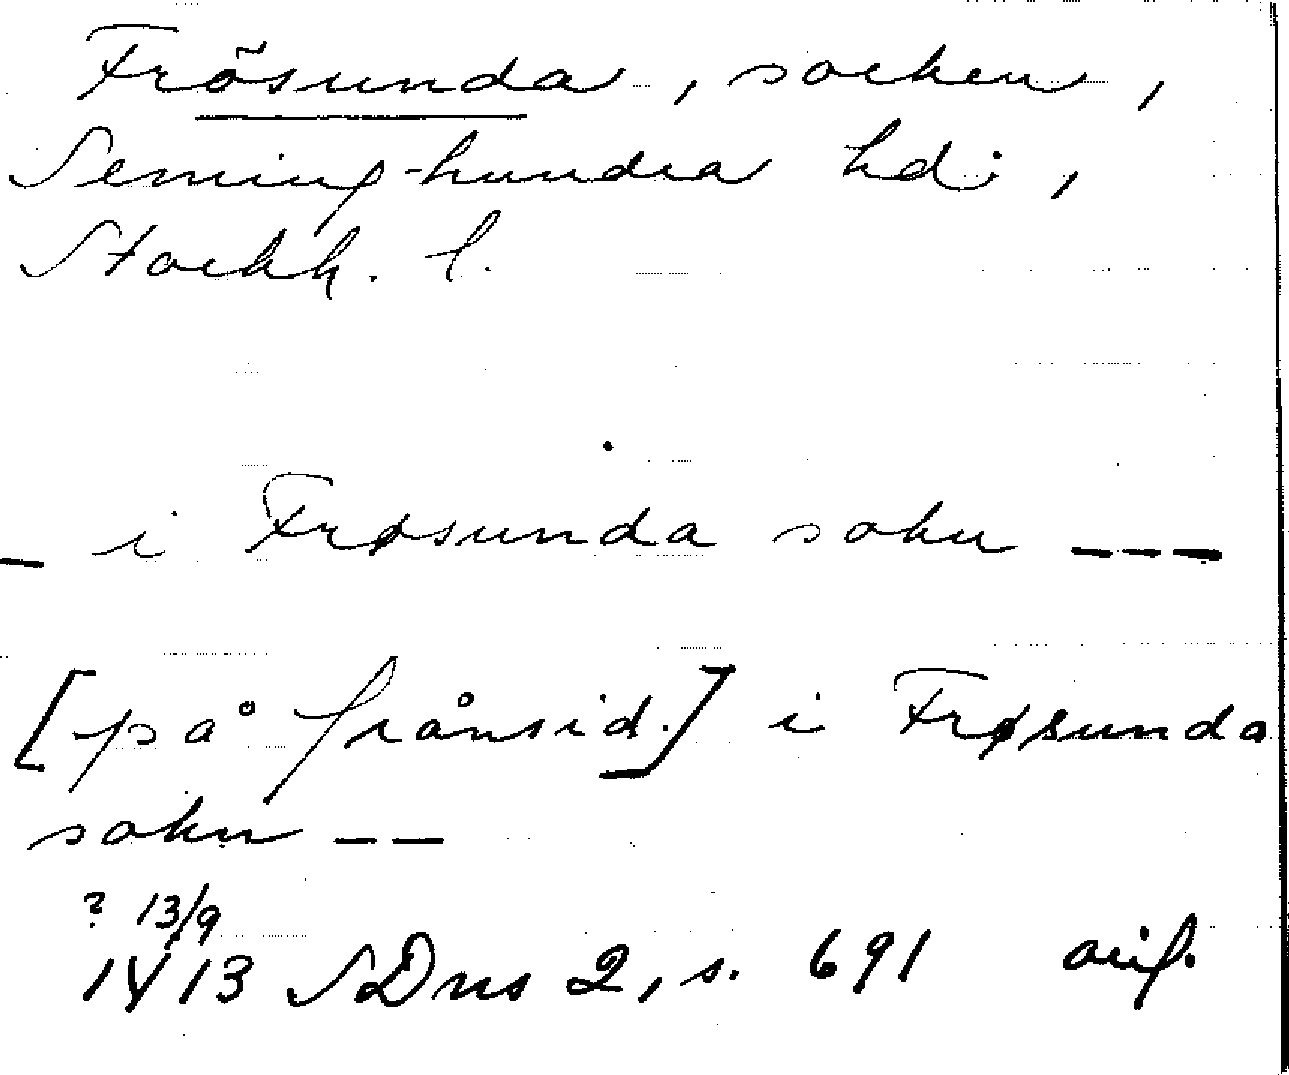 Frösunda, socken,
Seminghundra hd:,
Stockh. l.
— i Frøsunda sokn ---
[på frånsid.] i Frøsunda
sokn --
? 13/9
1413 SDns 2, s. 691 orig.